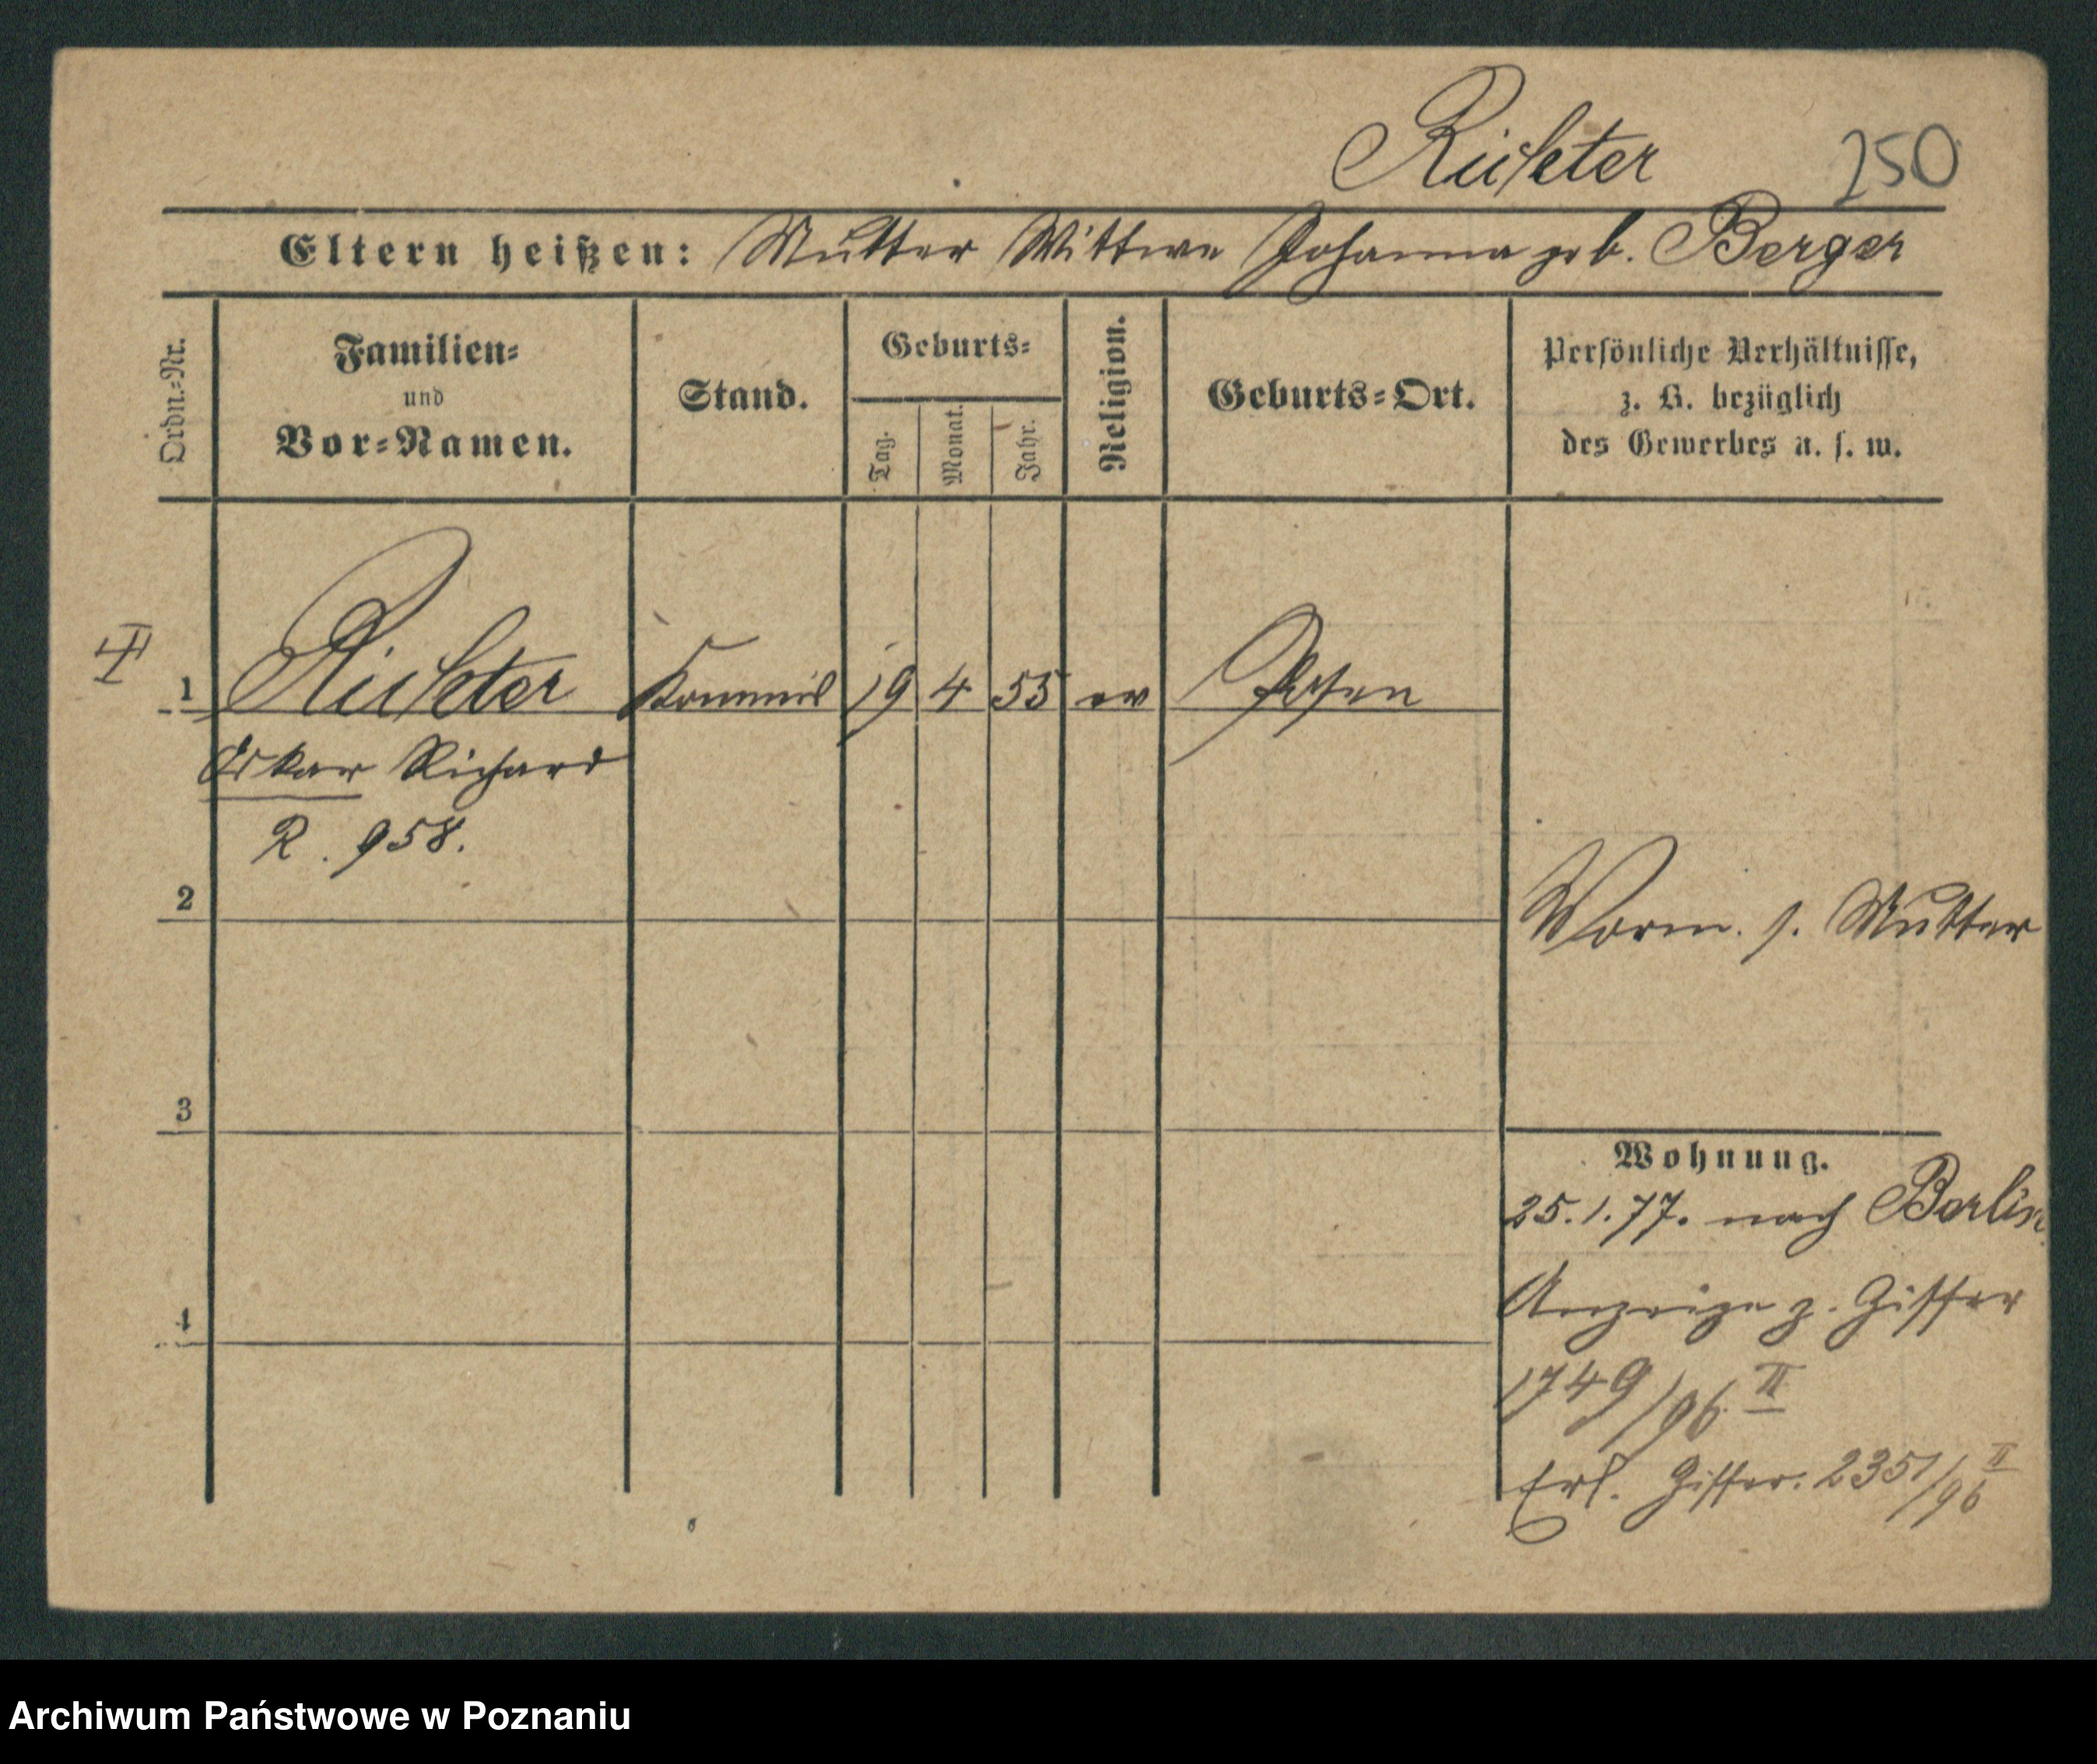 Richter 250
Eltern heißen: Mutter Wittwe Johanna geb. Berger
Ordn.-Nr.
Familien-
und
Vor-Namen.
Stand.
Geburts-
Tag.
Monat.
Jahr.
Religion.
Geburts-Ort.
Persönliche Verhältnisse,
z. B. bezüglich
des Gewerbes u. s. w.
1 Richter Kommis 19 4 55 ev Posen
Oskar Richard
R. 958.
2
Vorm. s. Mutter
3
Wohnung.
25.1.77. nach Berlin
4
Anzeige z. Ziffer
1749/96 II
Erl. Ziffer: 2351/96 II
Archiwum Państwowe w Poznaniu